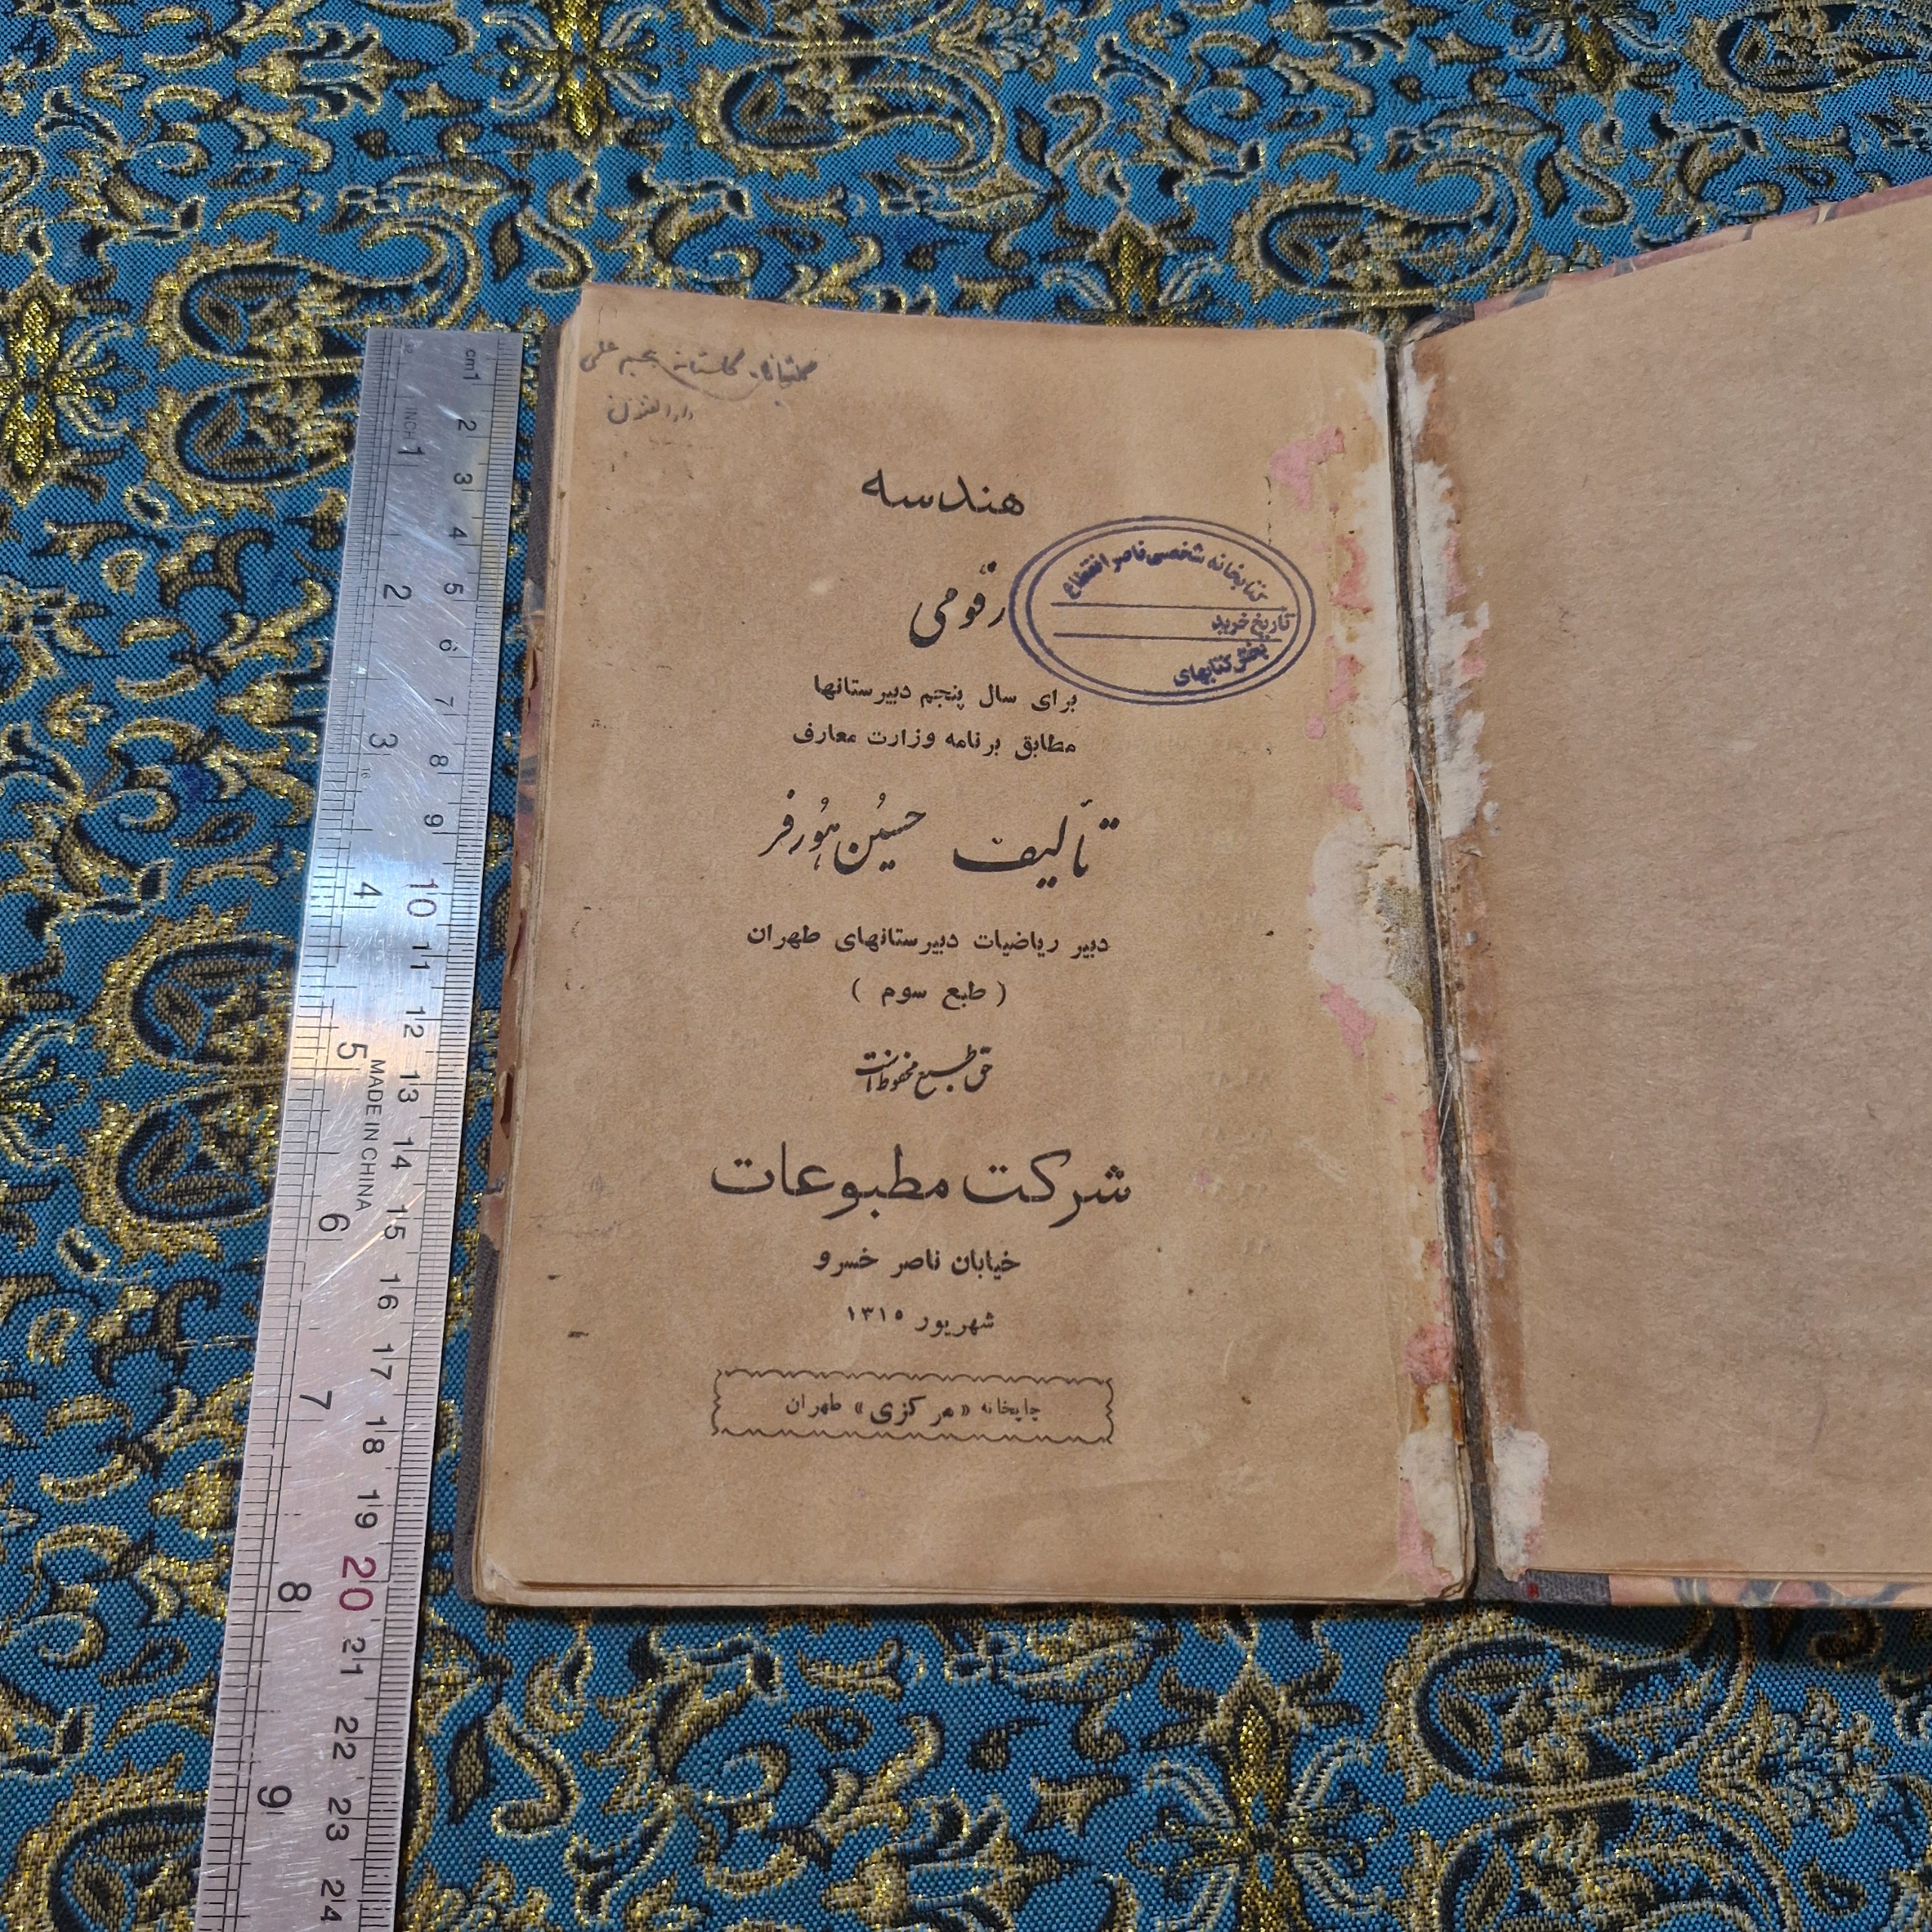 گلستانه
دارالفنون
هندسه
رقومی
کتابخانه شخصی ناصر انقطاع
تاریخ خرید
بخش کتابهای
برای سال پنجم دبیرستانها
مطابق برنامه وزارت معارف
تألیف حسین هورفر
دبیر ریاضیات دبیرستانهای طهران
( طبع سوم )
حق طبع محفوظ است
شرکت مطبوعات
خیابان ناصر خسرو
شهریور ۱۳۱۵
چاپخانه «مرکزی» طهران
cm1 2 3 4 5 6 7 8 9 10 11 12 13 14 15 16 17 18 19 20 21 22 23 24
INCH 1 2 3 4 5 6 7 8 9
MADE IN CHINA